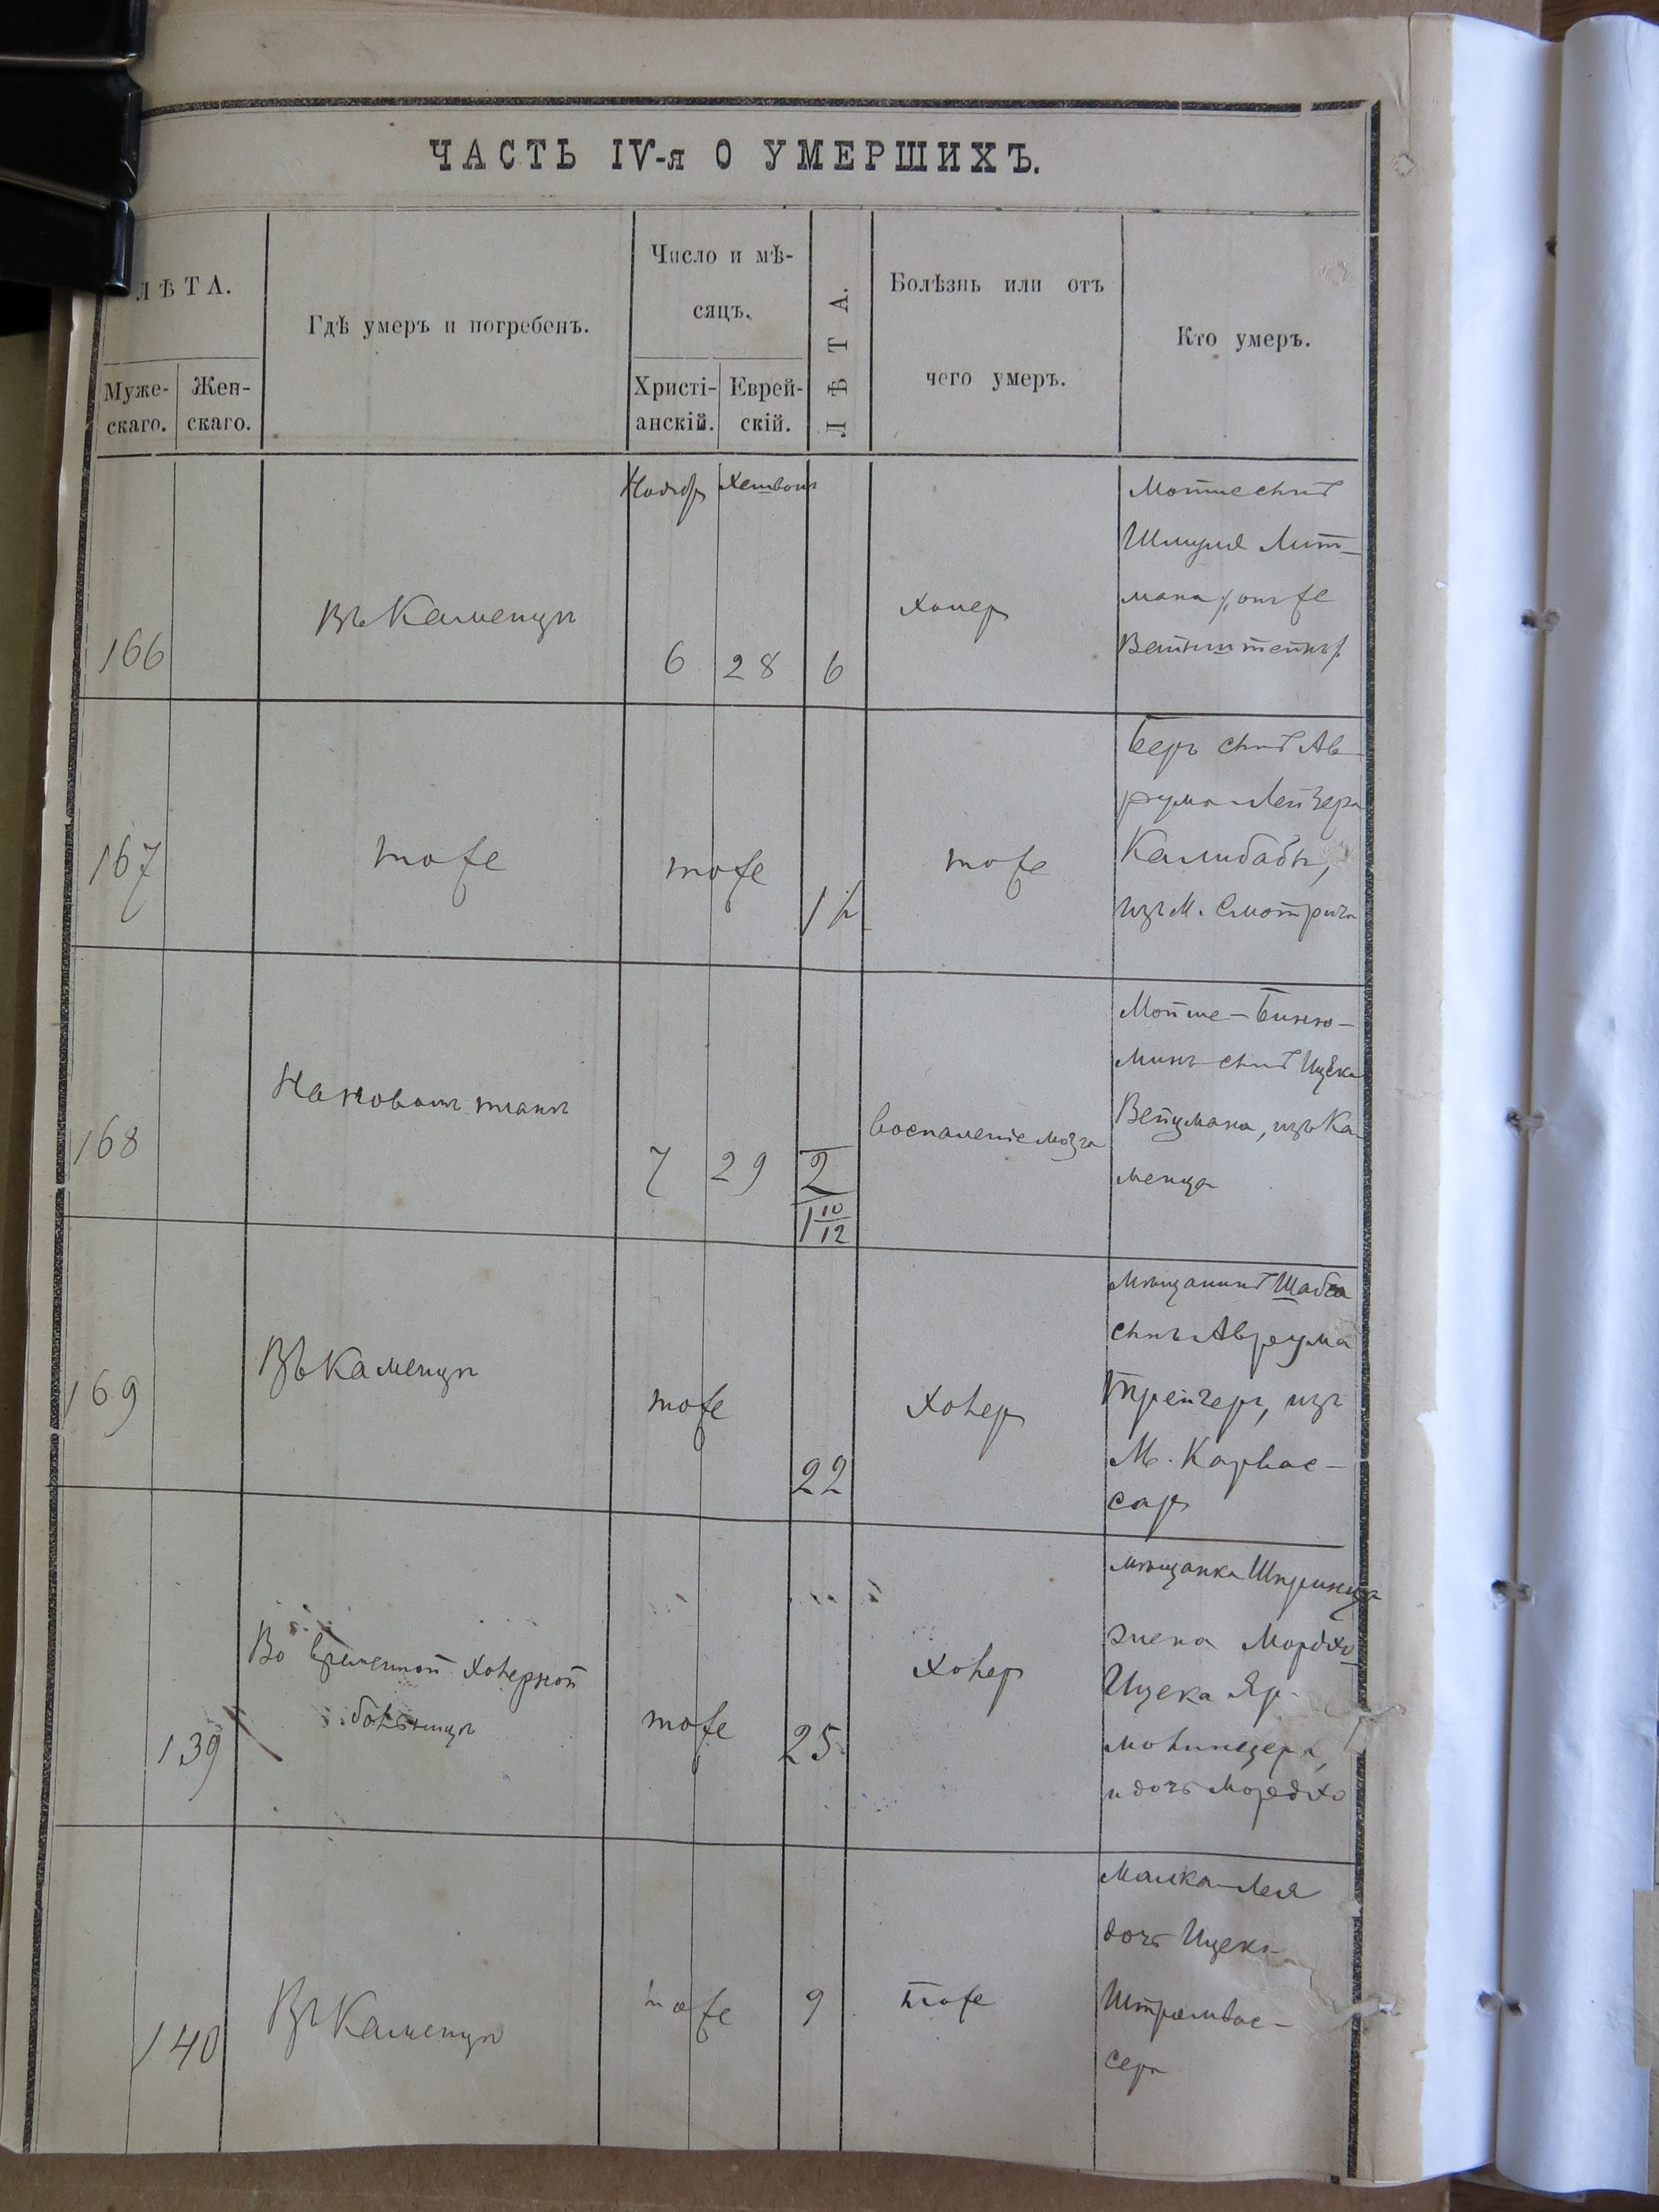 ЧАСТЬ IV-я О УМЕРШИХЪ.
ЛѢТА.
Муже-
скаго.
Жен-
скаго.
Гдѣ умеръ и погребенъ.
Число и мѣ-
сяцъ.
Христі-
анскій.
Еврей-
скій.
ЛѢТА.
Болѣзнь или отъ
чего умеръ.
Кто умеръ.
166
Въ Каменцѣ
Ноябр Хешвонъ
6 28 6
холер
Мойше сынъ
Шмуля Лит-
мана /онъ же
Вайнштейнъ/
167
тоже
тоже
1½
тоже
Беръ сынъ Ав-
рума-Лейзера
Калибабы,
изъ М. Смотрича
168
На новомъ планѣ
7 29 2
1 10/12
воспаленіе мозга
Мойше-Биню-
минъ сынъ Ицека
Вейцмана, изъ Ка-
менца
169
Въ Каменцѣ
тоже
22
Холер
Мѣщанинъ Шабса
сынъ Аврума
Трейгеръ, изъ
М. Карвас-
сар
139
Во временной холерной
больницѣ
тоже
25
Холер
мѣщанка Шпринца
жена Мордхо
Ицека Яр-
молинецера,
и дочь Мордхо
140
Въ Каменцѣ
тоже
9
тоже
Малка-Лея
дочь Ицека
Штромвас-
сера